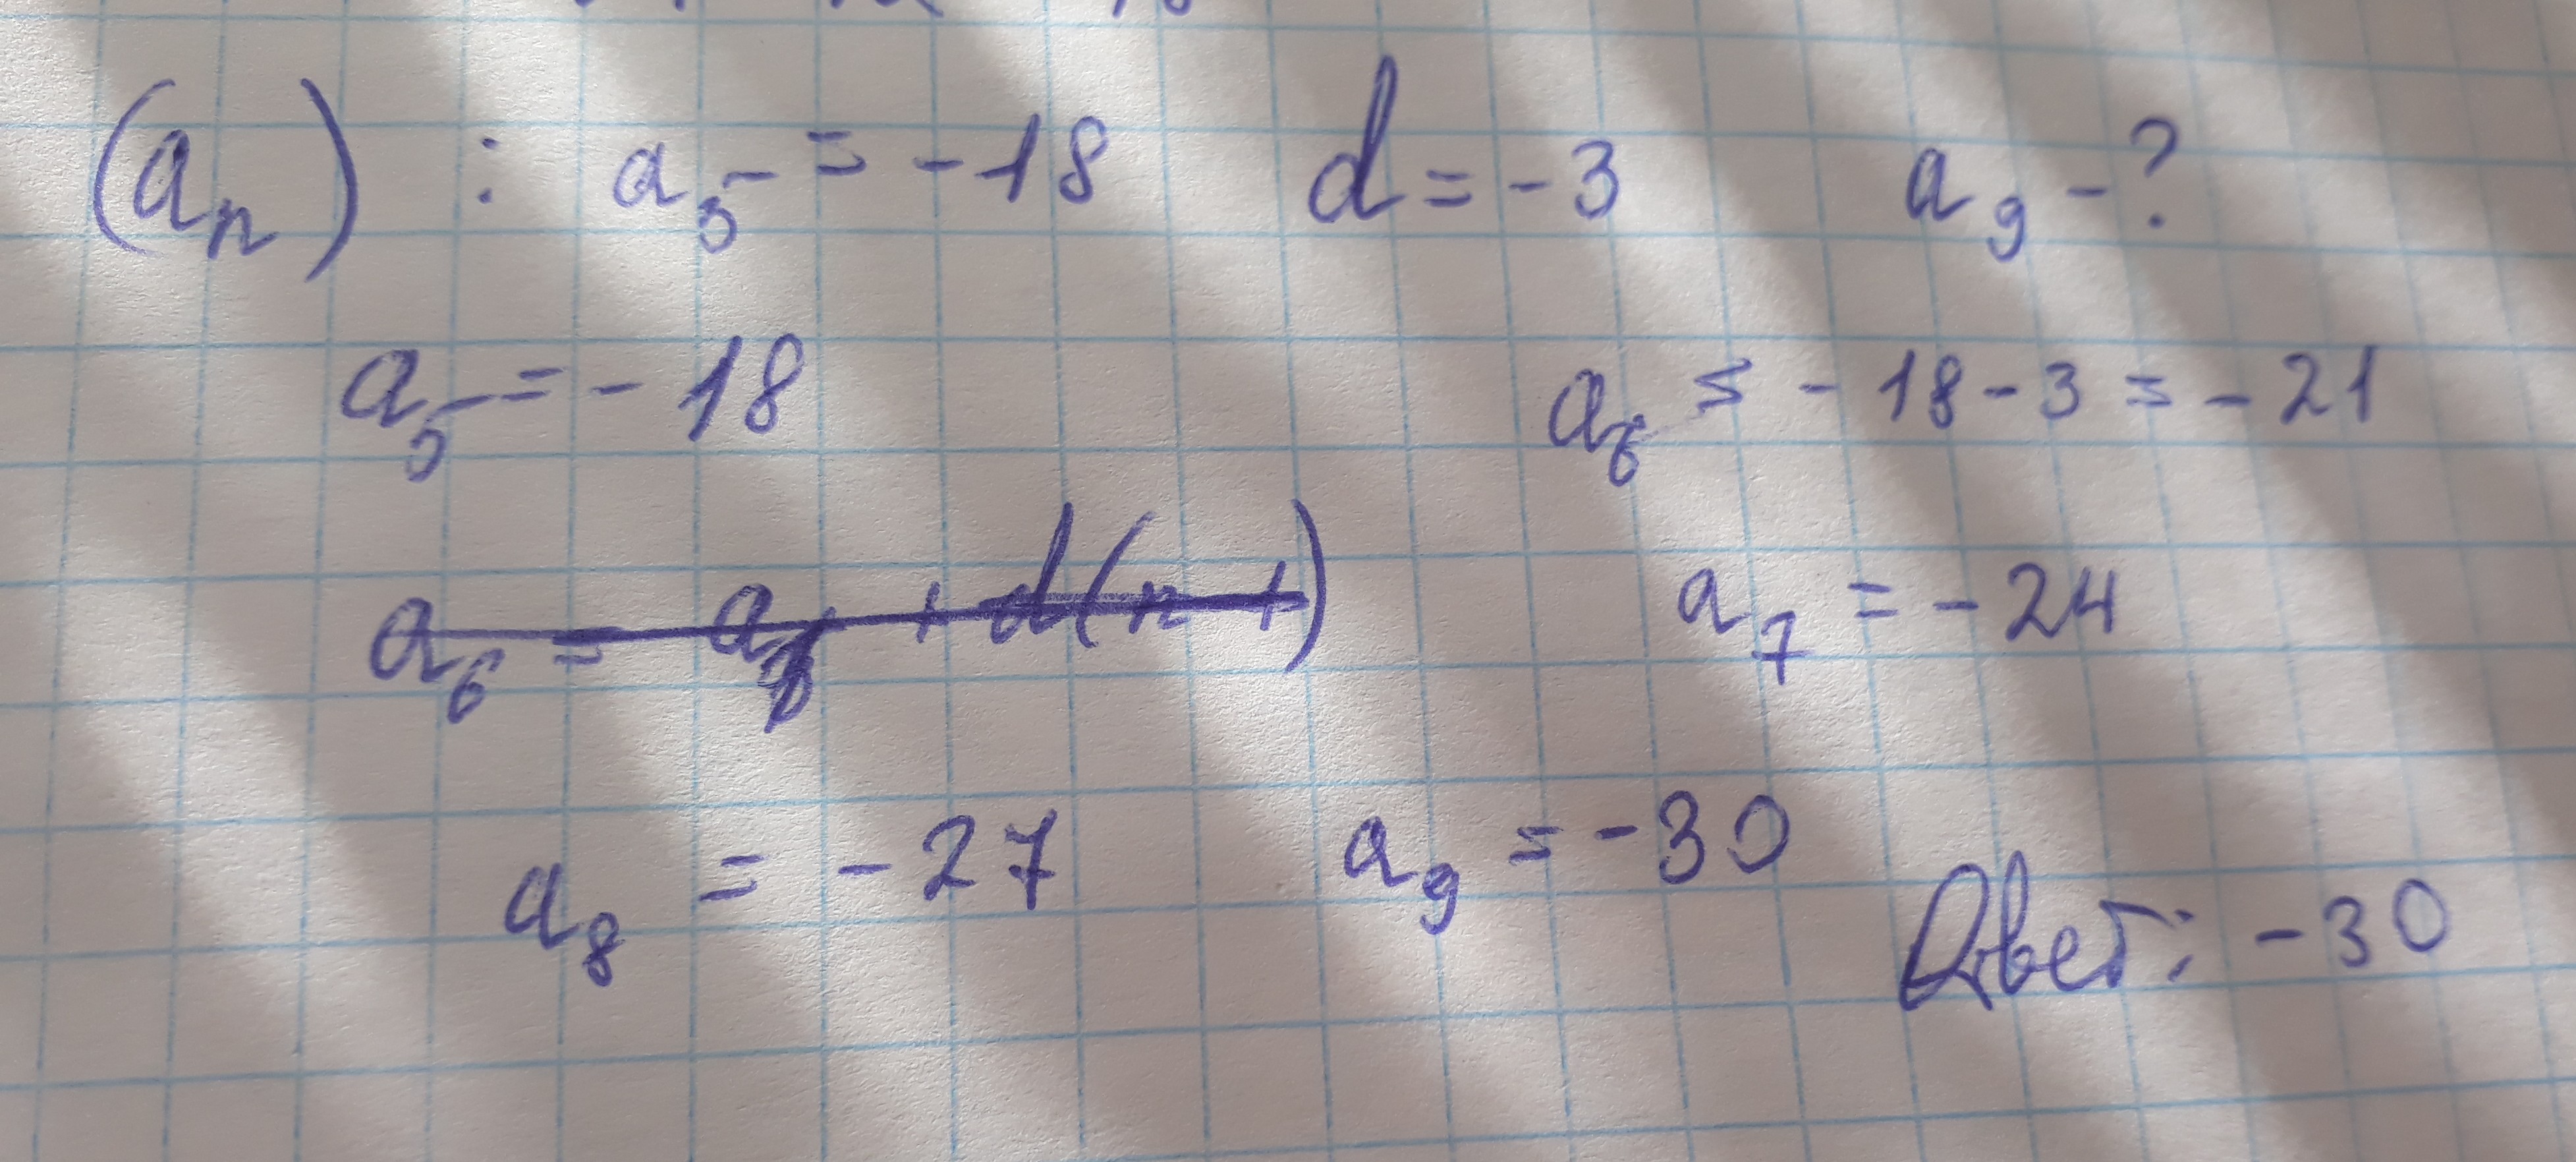 (aₙ) : a₅ = -18 d = -3 a₉ - ?
a₅ = - 18 a₆ = - 18 - 3 = - 21
a₇ = - 24
a₈ = - 27 a₉ = - 30
Ответ: - 30